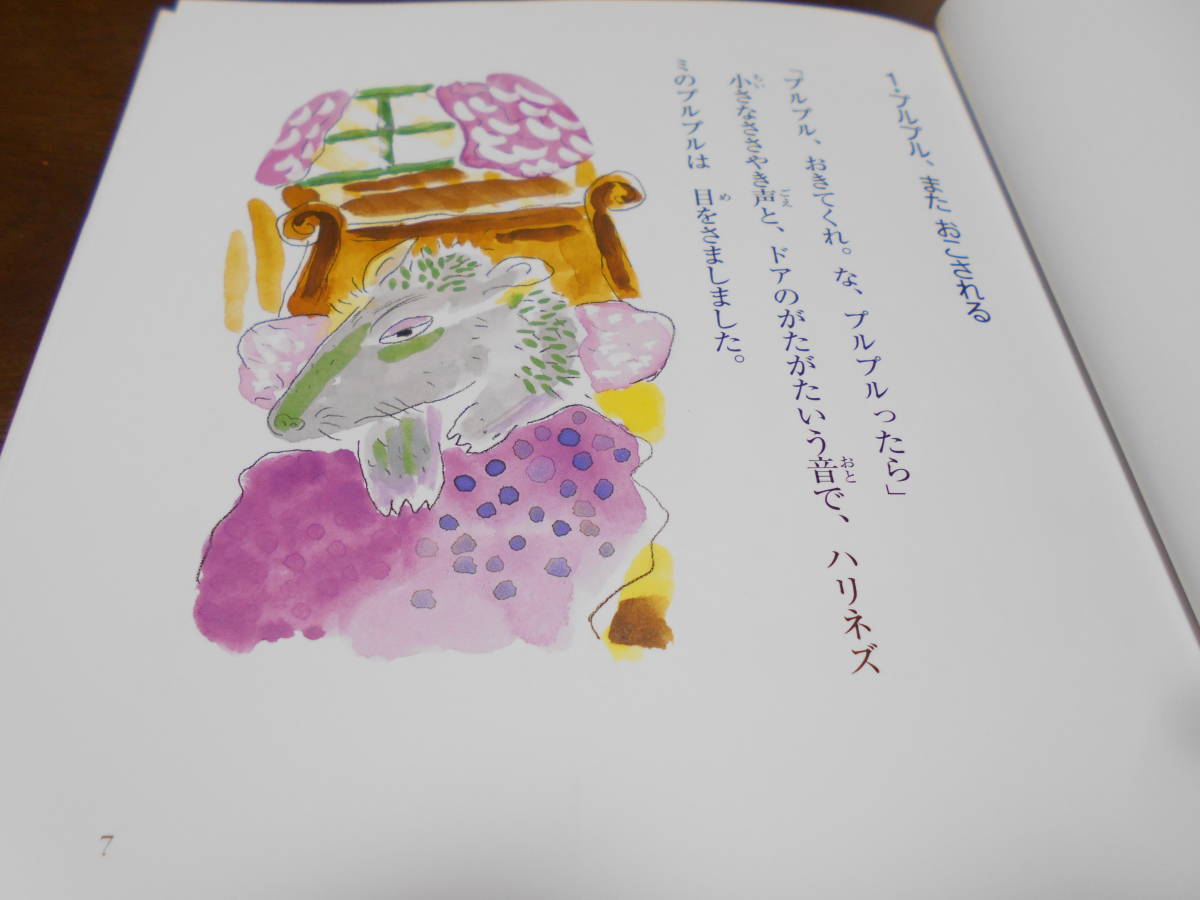 1・プルプル、また おこされる
「プルプル、おきてくれ。な、プルプルったら」
小さなささやき声と、ドアのがたがたいう音で、ハリネズ
ミのプルプルは 目をさましました。
7